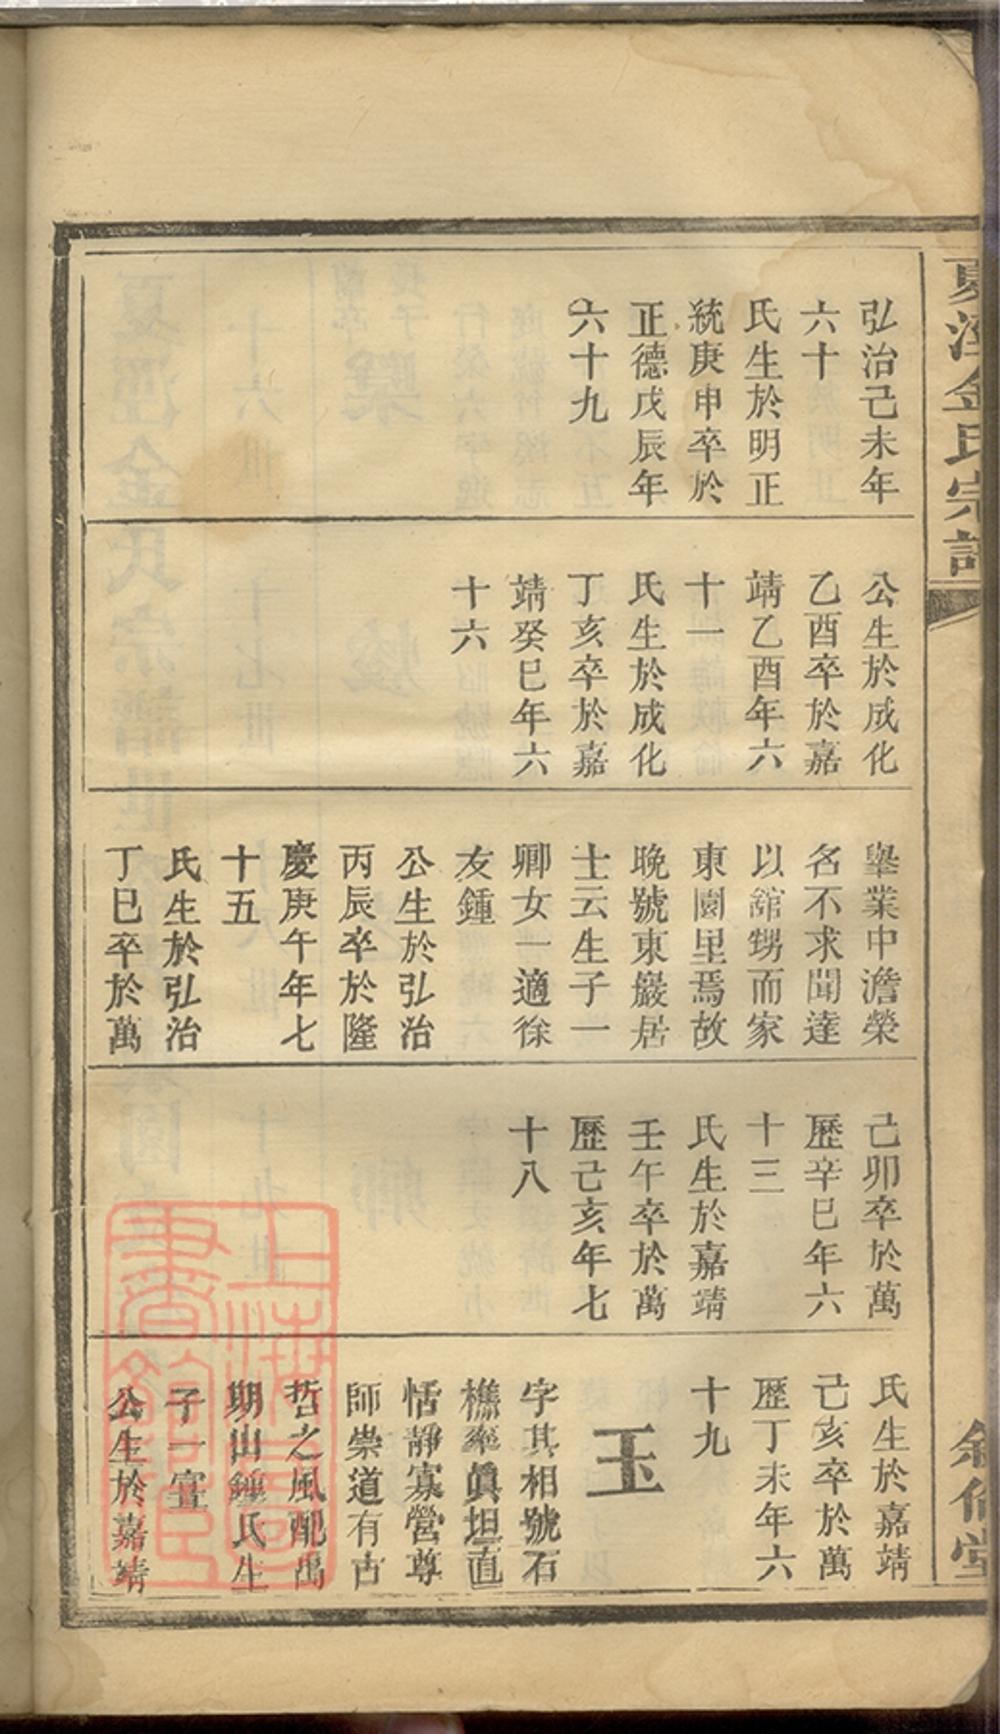 金氏宗
弘治己未年
六十
氏生於明正
統庚申卒於
正德戊辰年
六十九
公生於成化
乙酉卒於嘉
靖乙酉年六
十一
氏生於成化
丁亥卒於嘉
靖癸巳年六
十六
舉業中澹榮
名不求聞達
以舘甥而家
東園里焉故
晚號東巖居
士云生子一
卿女一適徐
友鍾
公生於弘治
丙辰卒於隆
慶庚午年七
十五
氏生於弘治
丁巳卒於萬
己卯卒於萬
歷辛巳年六
十三
氏生於嘉靖
壬午卒於萬
歷己亥年七
十八
氏生於嘉靖
己亥卒於萬
歷丁未年六
十九
玉
字其相號石
樵率眞坦直
恬靜寡營尊
師崇道有古
哲之風配禺
期山鍾氏生
子一
公生於嘉靖
上海圖書館藏